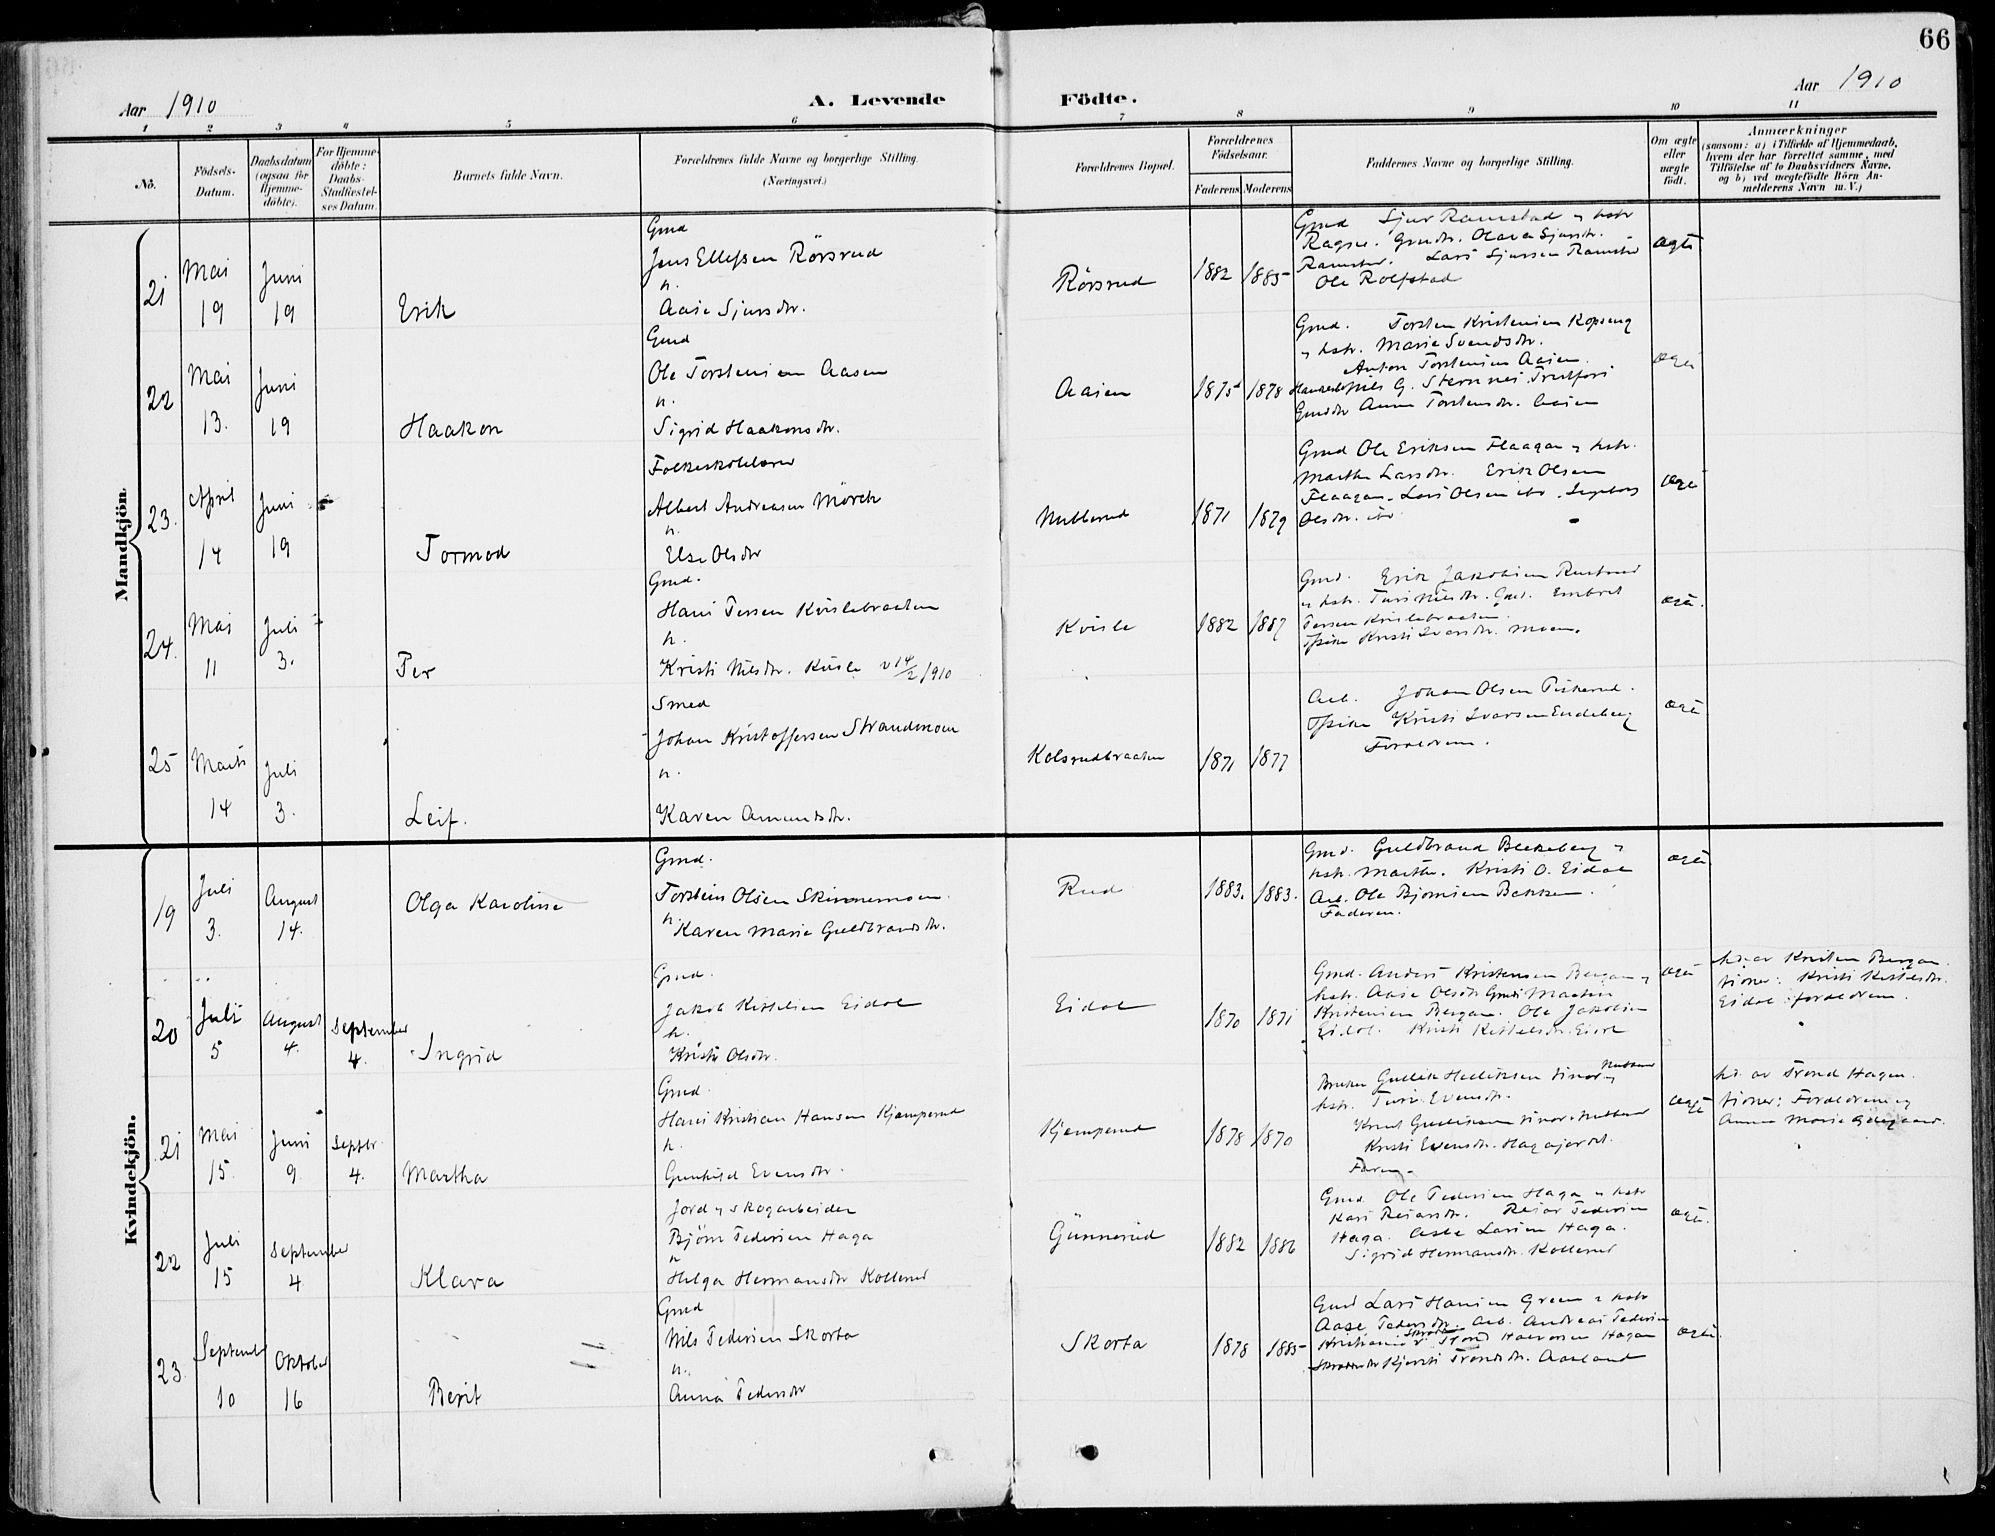 66
Aar 1910
A. Levende
Födte.
Aar 1910
1 2 3 4 5 6 7 8 9 10 11
No.
Födsels-
Datum.
Daabsdatum
(ogsaa för
Hjemme-
döbte).
For Hjemme-
döbte:
Daabs-
Stadfæstel-
ses Datum.
Barnets fulde Navn.
Forældrenes fulde Navne og borgerlige Stilling.
(Næringsvei.)
Forældrenes Bopæl.
Forældrenes
Födselsaar.
Faderens Moderens
Faddernes Navne og borgerlige Stilling.
Om ægte
eller
uægte
födt.
Anmærkninger
(saasom: a) i Tilfælde af Hjemmedaab,
hvem der har forrettet samme, med
Tilföielse af to Daabsvidners Navne,
og b) ved uægtefödte Börn An-
melderens Navn m. V.)
Mandkjön.
21
Mai
19
Juni
19
Erik
Gmd
Jens Ellefsen Rörsrud
h.
Aase Sjursdtr.
Rörsrud
1882 1885
Gmd Sjur Ramstad og hstr
Ragne. Gmdtr. Olava Sjursdtr.
Ramstad. Lars Sjursen Ramstad
Ole Rolfstad
ægte
22
Mai
13.
Juni
19
Haakon
Gmd
Ole Torstensen Aasen
h.
Sigrid Haakonsdtr.
Aasen
1875 1878
Gmd. Torsten Kristensen Kopseng
og hstr. Marie Svendsdtr.
Anton Torstensen Aasen.
Nils G. Sternnes
Gmdtr Anne Torstensdtr. Aasen
ægte
23.
April
14
Juni
19
Tormod
Folkeskolelærer
Albert Andreasen Mörch
h.
Else Olsdtr
Nubberud
1871 1879
Gmd Ole Eriksen Flaagan og hstr.
Marthe Larsdtr. Erik Olsen
Flaagan. Lars Olsen ibd. Ingeborg
Olsdtr. ibd
ægte
24.
Mai
11
Juli
3.
Per
Gmd.
Hans Persen Kvislebraaten
h.
Kristi Nilsdtr. Kvisle v 14/2 1910
Kvisle
1882 1887
Gmd. Erik Jakobsen Rustrud
og hstr. Turi Nilsdtr. Gmd. Embret
Persen Kvislebraaten.
Pike Kristi Ivarsdtr. Moen.
ægte.
25
Marts
14
Juli
3.
Leif.
Smed
Johan Kristoffersen Strandmoen
h.
Karen Amundsdtr.
Kolsrudbraaten
1871 1877
Arb. Johan Olsen Piskerud.
Pike Kristi Ivarsen Endeberg
Forældrene.
ægte
Kvindekjön.
19
Juli
3.
August
14.
Olga Karoline
Gmd.
Torstein Olsen Skinnemoen.
h.
Karen Marie Guldbrandsdtr.
Rud
1883. 1883.
Gmd. Guldbrand BleKeberg og
hstr. Marthe. Kristi O. Eidal
Arb. Ole Björnsen Bakken.
Faderen.
ægte
20
Juli
5
August
4.
September
4.
Ingrid
Gmd.
Jakob Kittelsen Eidal
h.
Kristi Olsdtr.
Eidal
1870 1871
Gmd. Anders Kristensen Bergan og
hstr. Aase Olsdtr Gmd. Martin
Kristensen Bergan. Ole Jakobsen
Eidal. Kristi Kittelsdtr. Eidal
ægte
hd. av Kristen Bergan.
tioner: Kristi Kittelsdtr.
Eidal. forældrene.
21
Mai
15.
Juni
9.
Septbr.
4.
Martha
Gmd.
Hans Kristian Hansen Kjemperud
h.
Gunhild Evensdtr.
Kjemperud
1878 1870
Bruker Gullik Helliksen
hstr. Turi Evensdtr.
Knut Gulliksen
Kristi Evensdtr. Hagajordet.
Faren.
ægte
hd. av Trond Hagen.
tioner: Forældrene og
Anne Marie
22
Juli
15
September
4
Klara
Jord og skogarbeider
Björn Pedersen Haga
h
Helga Hermansdtr Kollerud
Gunnerud
1882 1886
Gmd. Ole Pedersen Haga og hstr
Kari Reiarsdtr. Reiar Pedersen
Haga. Asle Larsen Haga.
Sigrid Hermansdtr. Kollerud
ægte.
23.
September
10
Oktober
16
Berit
Gmd
Nils Pedersen Skorta
h.
Anna Pedersdtr
Skorta
1878 1885
Gmd Lars Hansen Green og hstr
Aase Pedersdtr. Arb. Andreas Pedersen
Halvorsen Hagan
Kjersti Trondsdtr. Aasland
ægte.